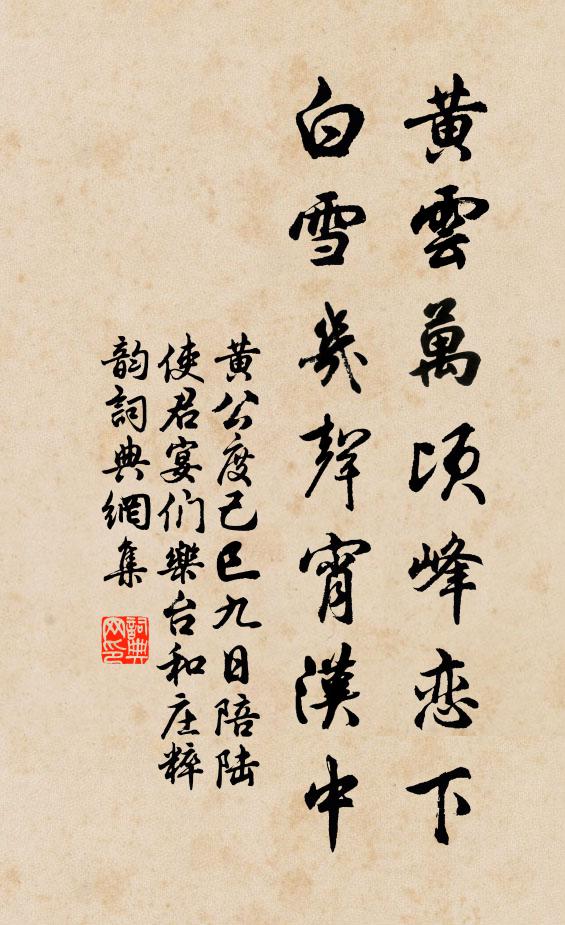 黄雲萬頃峰恋下
白雪幾聲宵漢中
黄公度己巳九日陪陆
使君宴们樂台和庄粹
韵詞典網集
詞典
网印